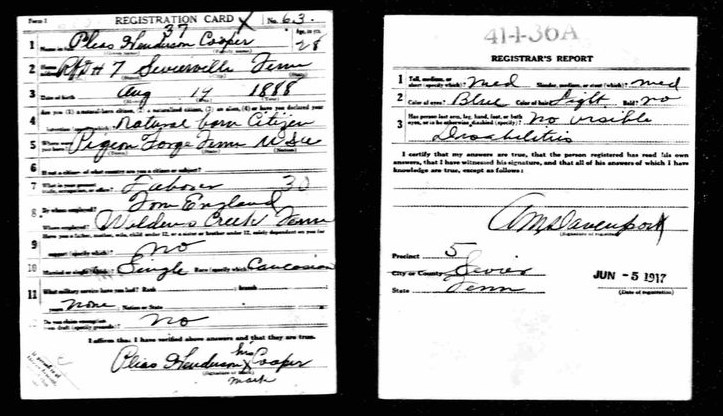 Form 1 REGISTRATION CARD X No. 63
37 Age, in yrs.
1 Name in full Plias Henderson Cooper 28
2 Home address RFD # 7 Sevierville Tenn
3 Date of birth Aug 14 1888
Are you (1) a natural-born citizen, (2) a naturalized citizen, (3) an alien, (4) or have you declared your
4 intention (specify which)? Natural born Citizen
5 Where were you born? Pigeon Forge Tenn USA
6 If not a citizen, of what country are you a citizen or subject?
7 What is your present trade, occupation, or office? Laborer 30
8 By whom employed? Tom England
Where employed? Creek Tenn
Have you a father, mother, wife, child under 12, or a sister or brother under 12, solely dependent on you for
9 support (specify which)? No
10 Married or single (which)? Single Race (specify which)? Caucasian
11 What military service have you had? Rank branch
years None Nation or State
12 Do you claim exemption from draft (specify grounds)? No
I affirm that I have verified above answers and that they are true.
his
Plias Henderson X Cooper
mark
41-1-36A
REGISTRAR'S REPORT
1 Tall, medium, or short (specify which)? Med Slender, medium, or stout (which)? med
2 Color of eyes? Blue Color of hair? Light Bald? No
3 Has person lost arm, leg, hand, foot, or both eyes, or is he otherwise disabled (specify)? No visible
Disabilities
I certify that my answers are true, that the person registered has read his own
answers, that I have witnessed his signature, and that all of his answers of which I have
knowledge are true, except as follows:
A M Davenport
(Signature of registrar)
Precinct 5
City or County Sevier
State Tenn
JUN -5 1917
(Date of registration)